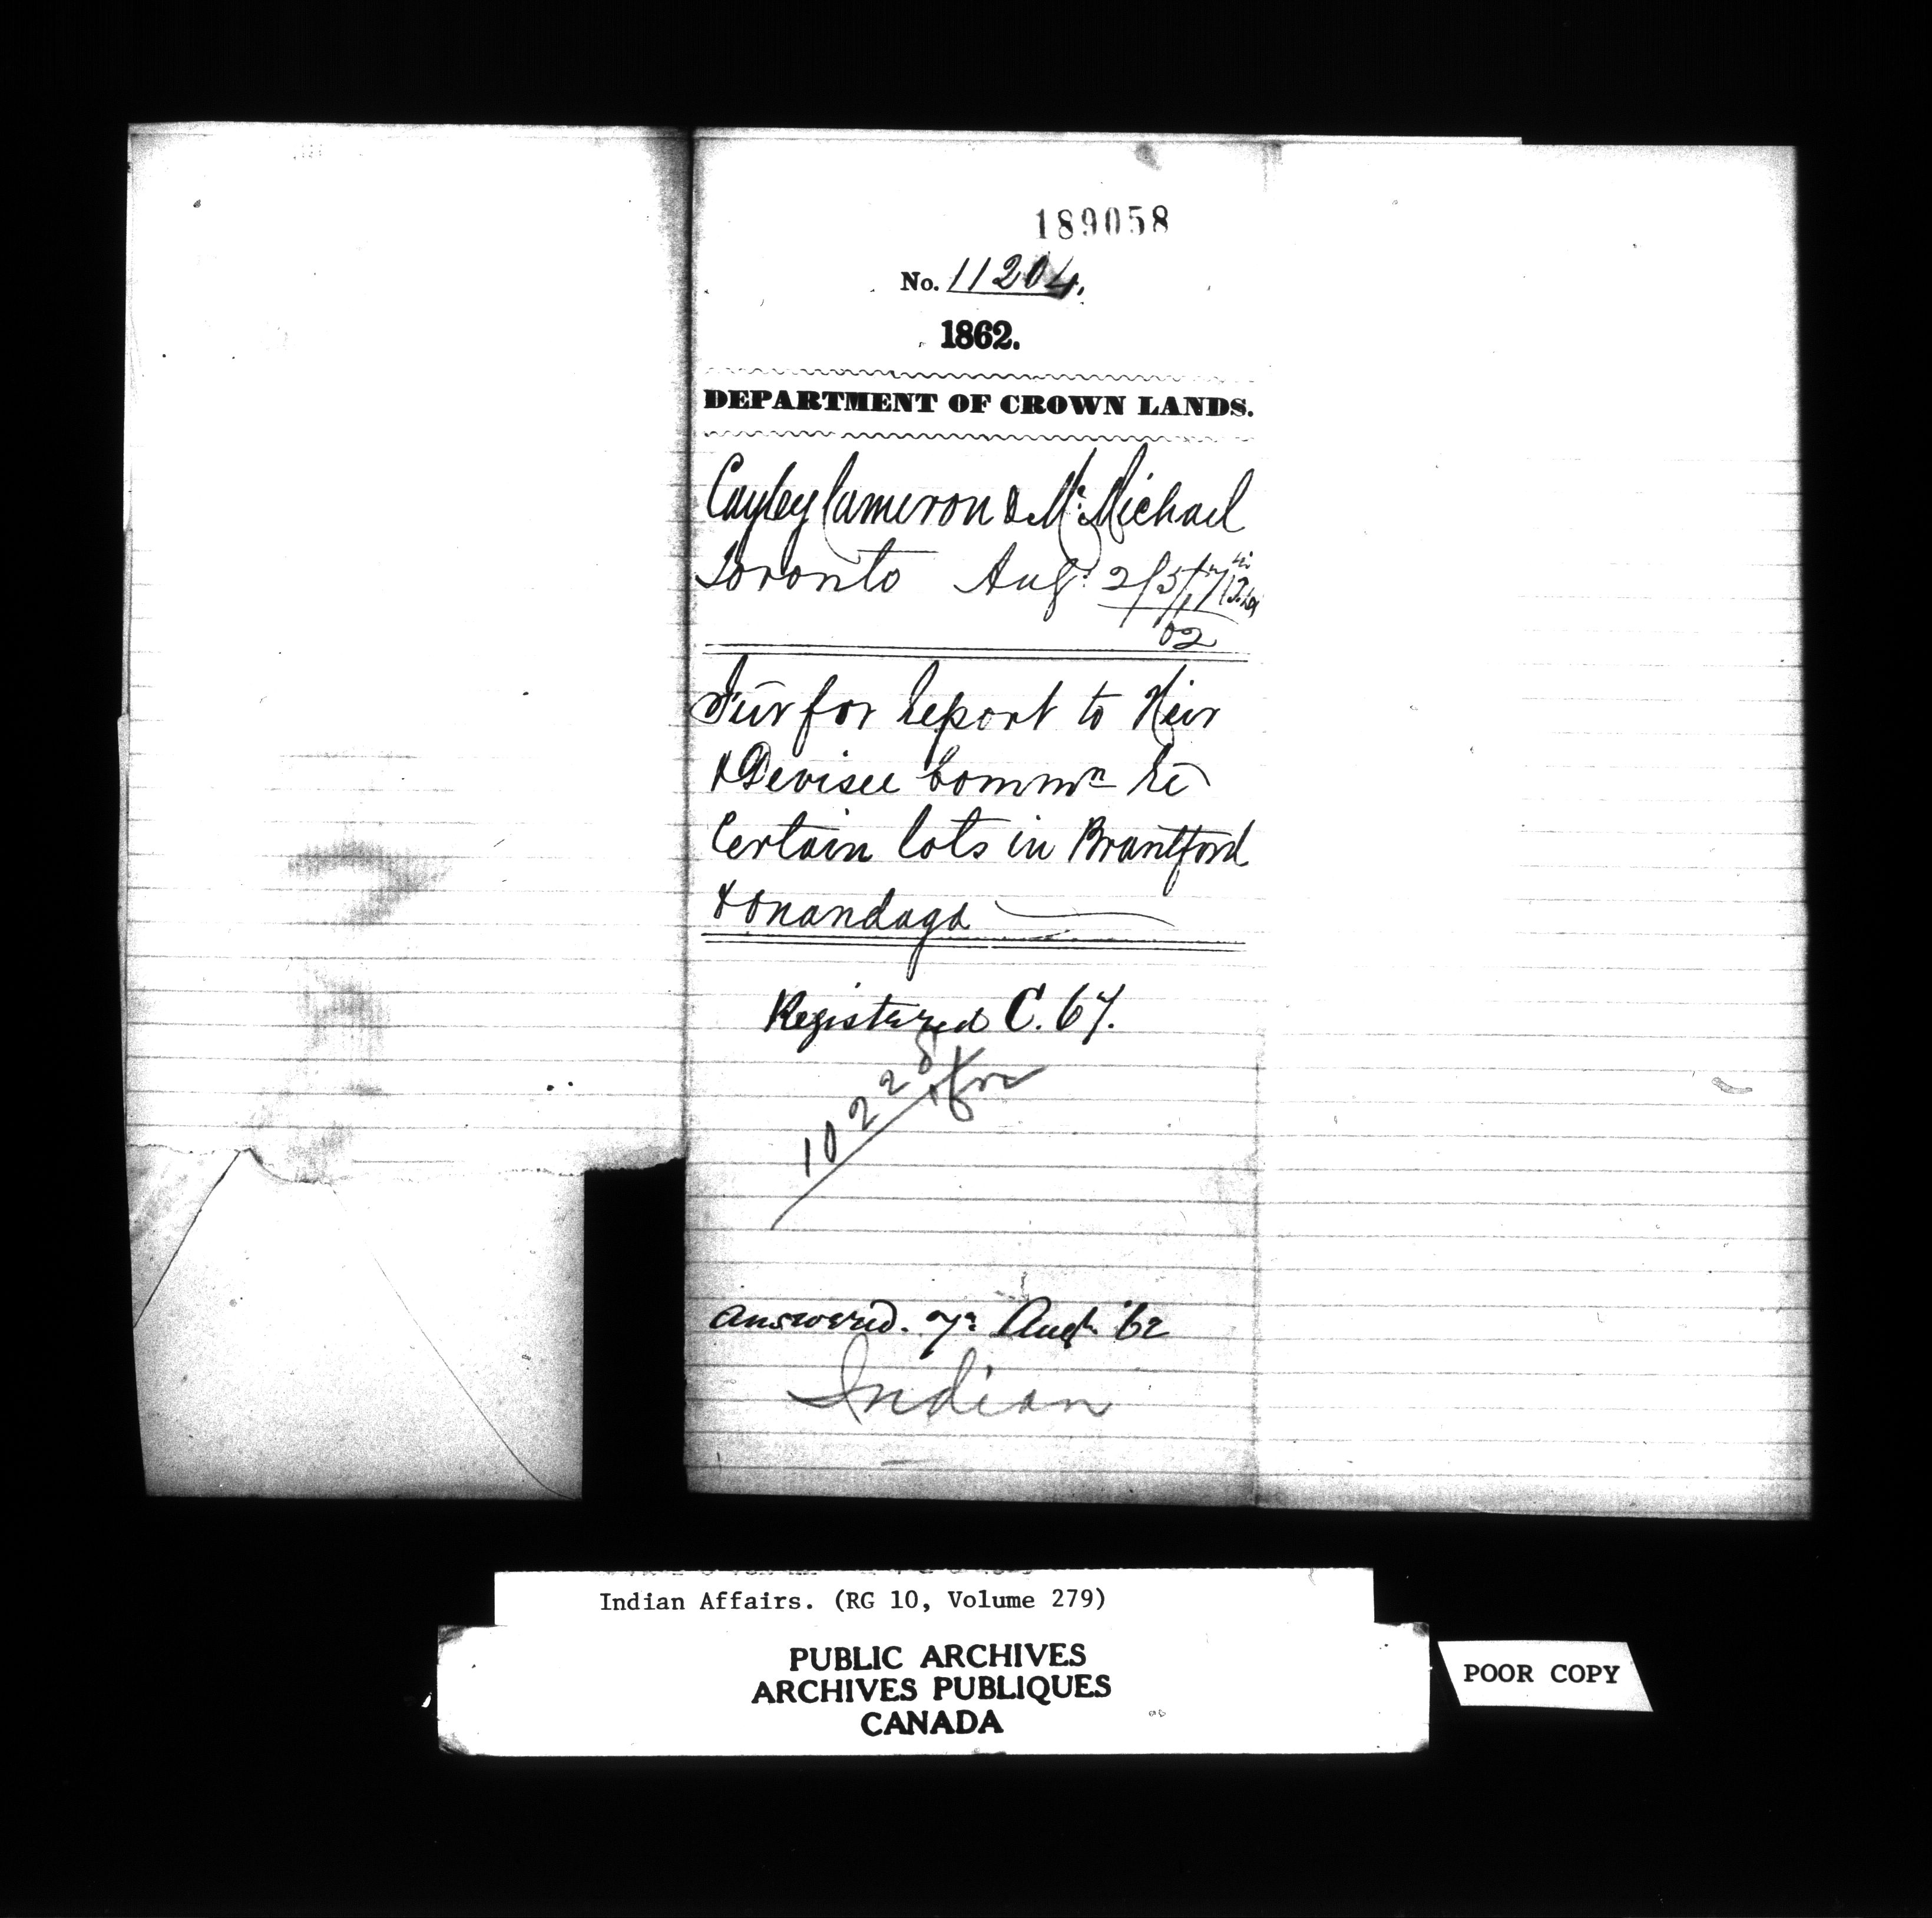 189058
No. 11204.
1862.
DEPARTMENT OF CROWN LANDS.
Cayley Cameron & Mc Michael
Toronto Augt 2/5/
62
for report to Heir
& Devisee Commn re
Certain lots in Brantford
& Onandaga
Registered C. 67.
10228
answered. 7th Augt '62
Indian
Indian Affairs. (RG 10, Volume 279)
PUBLIC ARCHIVES
ARCHIVES PUBLIQUES
CANADA
POOR COPY